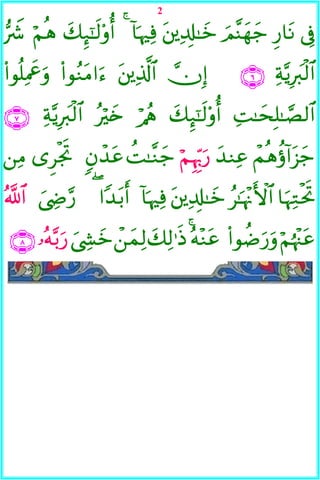 2
فِي نَارِ جَهَنَّمَ خَـٰلِدِينَ فِيهَآ ۚ أُو۟لَـٰٓئِكَ هُمْ شَرُّ
ٱلْبَرِيَّةِ ٦ إِنَّ ٱلَّذِينَ ءَامَنُوا۟ وَعَمِلُوا۟
ٱلصَّـٰلِحَـٰتِ أُو۟لَـٰٓئِكَ هُمْ خَيْرُ ٱلْبَرِيَّةِ ٧
جَزَآؤُهُمْ عِندَ رَبِّهِمْ جَنَّـٰتُ عَدْنٍ تَجْرِى مِن
تَحْتِهَا ٱلْأَنْهَـٰرُ خَـٰلِدِينَ فِيهَآ أَبَدًا ۖ رَّضِىَ ٱللَّهُ
عَنْهُمْ وَرَضُوا۟ عَنْهُ ۚ ذَٰلِكَ لِمَنْ خَشِىَ رَبَّهُۥ ٨